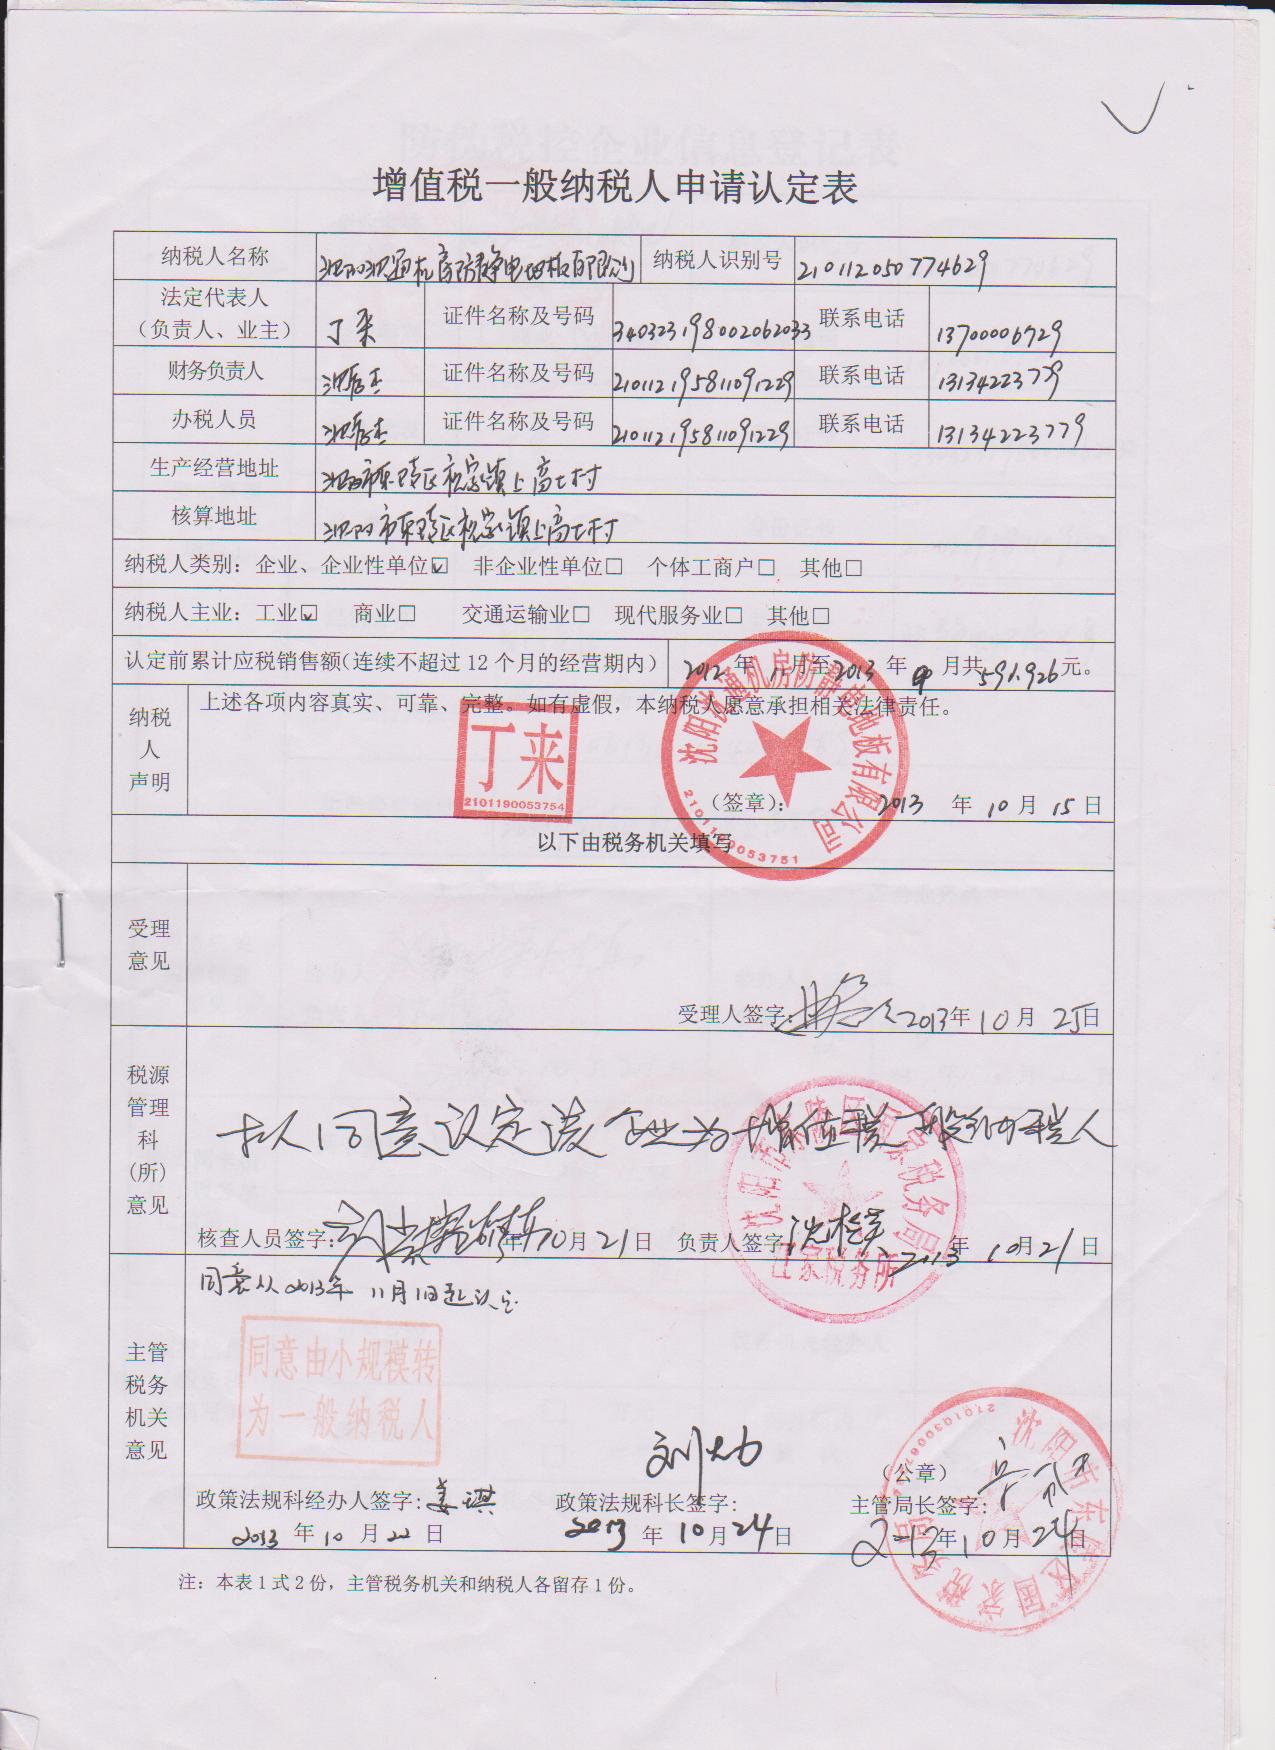 增值税一般纳税人申请认定表
纳税人名称 沈阳沈通机房防静电地板有限公司 纳税人识别号 210112050774629
法定代表人（负责人、业主） 丁来 证件名称及号码 340323198002062033 联系电话 13700006729
财务负责人 证件名称及号码 210112195811091229 联系电话 13134223779
办税人员 证件名称及号码 210112195811091229 联系电话 13134223779
生产经营地址 沈阳市东陵区祝家镇上高士村
核算地址 沈阳市东陵区祝家镇上高士村
纳税人类别：企业、企业性单位☑ 非企业性单位□ 个体工商户□ 其他□
纳税人主业：工业☑ 商业□ 交通运输业□ 现代服务业□ 其他□
认定前累计应税销售额（连续不超过 12 个月的经营期内） 2012 年 11 月至 2013 年 月共 591.926 元。
纳税人声明
上述各项内容真实、可靠、完整。如有虚假，本纳税人愿意承担相关法律责任。
丁来
2101190053754
沈阳沈通机房防静电地板有限公司
2101190053751
（签章）： 2013 年 10 月 15 日
以下由税务机关填写
受理意见
受理人签字： 2013年 10 月 25日
税源管理科(所)意见
拟同意认定该企业为增值税一般纳税人
沈阳市东陵区国家税务局
江家税务所
核查人员签字： 年10月21日 负责人签字： 2013 年 10月21日
主管税务机关意见
同意从2013年 11月1日起认定
同意由小规模转
为一般纳税人
刘大力
（公章）
政策法规科经办人签字：姜琪 政策法规科长签字： 主管局长签字：
2013 年 10 月 22 日 2013 年 10月24日 2013年10月24日
沈阳市东陵区国家税务局
注：本表 1 式 2 份，主管税务机关和纳税人各留存 1 份。